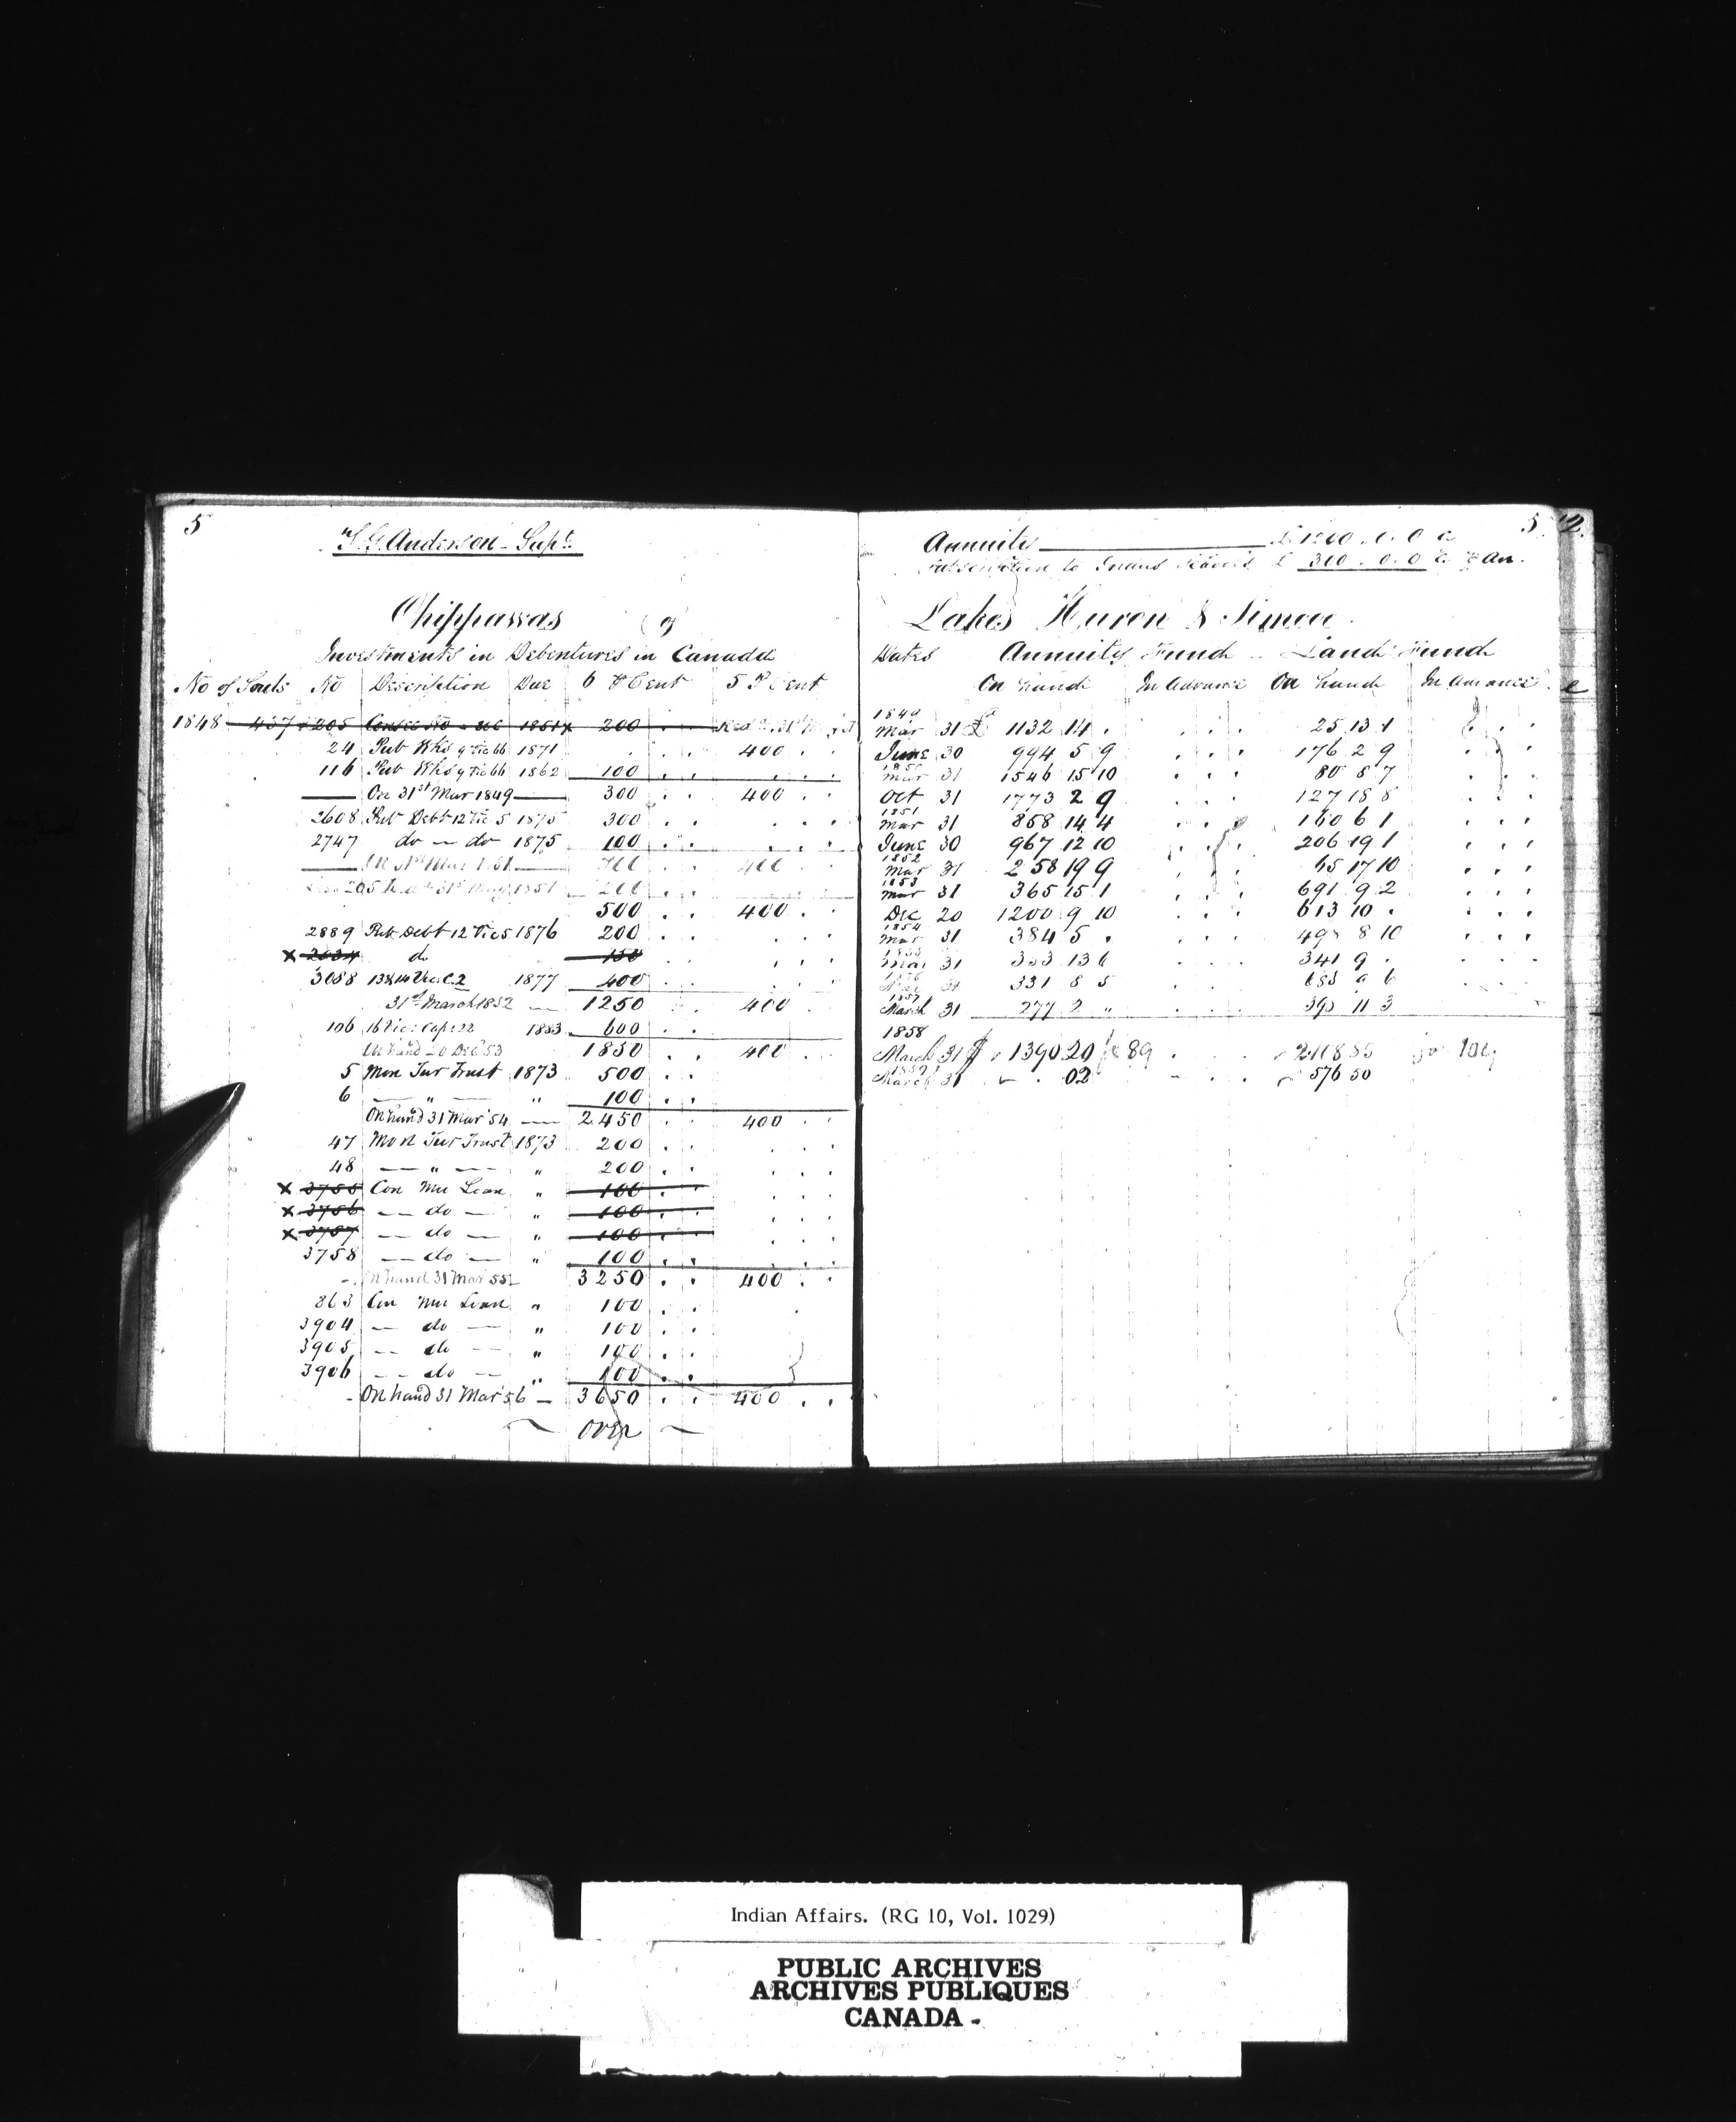 5
T. G. Anderson - Supt.
Chippawas of
Investments in Debentures in Canada
No of Souls No Description Due 6 P Cent 5 P Cent
1848 437 205 1851 200
24 Pub Wks 9 Vic 66 1871 400
116 Pub Wks 9 Vic 66 1862 100
On 31st Mar 1849 300 400
2608 Pub Debt 12 Vic 5 1875 300
2747 do do 1875 100
On 31st Mar 1851 700 400
205 31st May 1851 200
500 400
2889 Pub Debt 12 Vic 5 1876 200
2634 do 150
3088 13 & 14 Vic. C. 2 1877 400
31st March 1852 1250 400
106 16 Vic: Cap: 22 1883 600
On hand 20 Dec '53 1850 400
5 Mon Tur Trust 1873 500
6 " " 100
On hand 31 Mar '54 2450 400
47 Mon Tur Trust 1873 200
48 " " 200
3755 Con Mu Loan " 100
3756 do " 100
3757 do " 100
3758 do " 100
On hand 31 Mar 55 3250 400
863 Con Mu Loan " 100
3904 do " 100
3905 do " 100
3906 do " 100
On hand 31 Mar '56 3650 400
over
5
Annuity £ 1200 . 0 . 0 c
Subscription to £ 300 . 0 . 0 c P An.
Lakes Huron & Simcoe
Dates Annuity Fund Land Fund
On hand In Advance On hand In Advance
1849
Mar 31 £ 1132 14 . 25 13 1
June 30 994 5 9 176 2 9
1850
Mar 31 1546 15 10 80 8 7
Oct 31 1773 2 9 127 18 8
1851
Mar 31 858 14 4 160 6 1
June 30 967 12 10 206 19 1
1852
Mar 31 258 19 9 65 17 10
1853
Mar 31 365 15 1 691 9 2
Dec 20 1200 9 10 613 10 .
1854
Mar 31 384 5 . 498 8 10
1855
Mar 31 353 13 6 341 9 .
1856
Mar 31 331 8 5 683 9 6
1857
March 31 277 2 " 393 11 3
1858
March 31 $ 1390 20 89 2108 85
1859
March 31 . 02 576 50
Indian Affairs. (RG 10, Vol. 1029)
PUBLIC ARCHIVES
ARCHIVES PUBLIQUES
CANADA